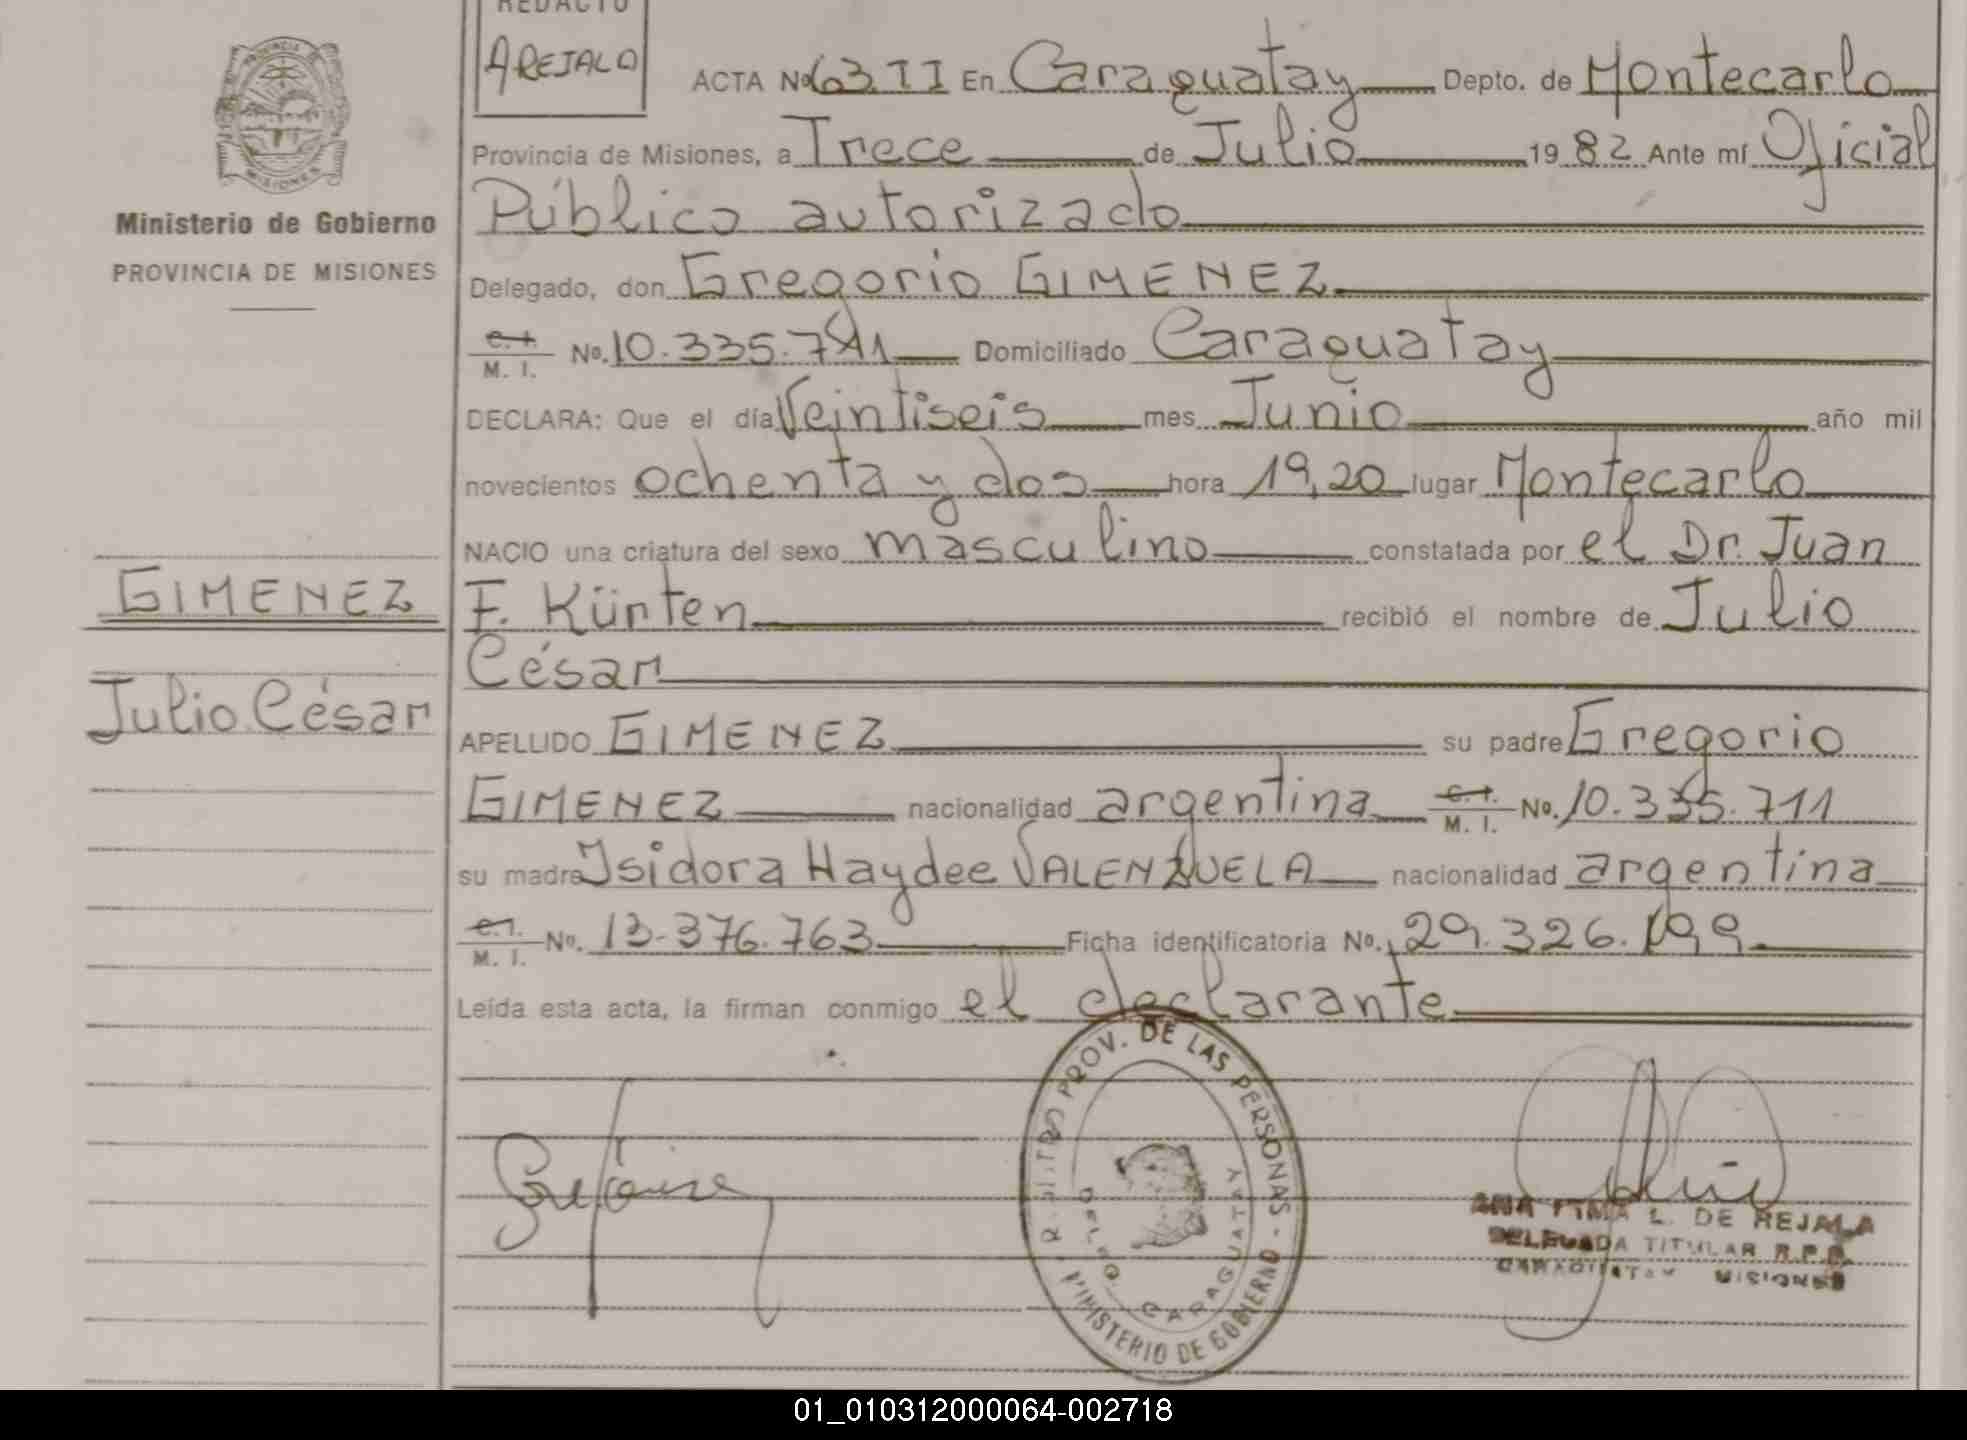 REDACTO
AREJALO
ACTA Nº 63 II En Caraguatay Depto. de Montecarlo
Provincia de Misiones, a Trece de Julio 1982 Ante mí Oficial
Público autorizado
Delegado, don Gregorio GIMENEZ
C.I. M. I. Nº. 10.335.711 Domiciliado Caraguatay
DECLARA: Que el día Veintiseis mes Junio año mil
novecientos ochenta y dos hora 19,20 lugar Montecarlo
NACIO una criatura del sexo masculino constatada por el Dr. Juan
F. Kürten recibió el nombre de Julio
César
APELLIDO GIMENEZ su padre Gregorio
GIMENEZ nacionalidad argentina C.I. M. I. Nº. 10.335.711
su madre Isidora Haydee VALENZUELA nacionalidad argentina
C.I. M. I. Nº. 13.376.763 Ficha identificatoria Nº. 29.326.199
Leída esta acta, la firman conmigo el declarante
PROVINCIA DE
MISIONES
Ministerio de Gobierno
PROVINCIA DE MISIONES
GIMENEZ
Julio César
REGISTRO PROV. DE LAS PERSONAS - MINISTERIO DE GOBIERNO
DELEG. CARAGUATAY
ANA L. DE REJALA
DELEGADA TITULAR R.P.P.
CARAGUATAY MISIONES
01_010312000064-002718